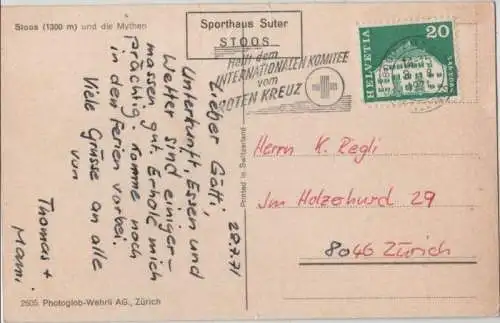 Stoos (1300 m) und die Mythen
Sporthaus Suter
STOOS
Helft dem
INTERNATIONALEN KOMITEE
vom
ROTEN KREUZ
HELVETIA
20
28.7.71
Lieber Götti,
Unterkunft, Essen und
Wetter sind einiger-
massen gut. Erhole mich
prächtig. Komme noch
in den Ferien vorbei.
Viele Grüsse an alle
von
Thomas +
Mami
Herrn K. Regli
Im Holzerhurd 29
8046 Zürich
Printed in Switzerland
2605 Photoglob-Wehrli AG., Zürich